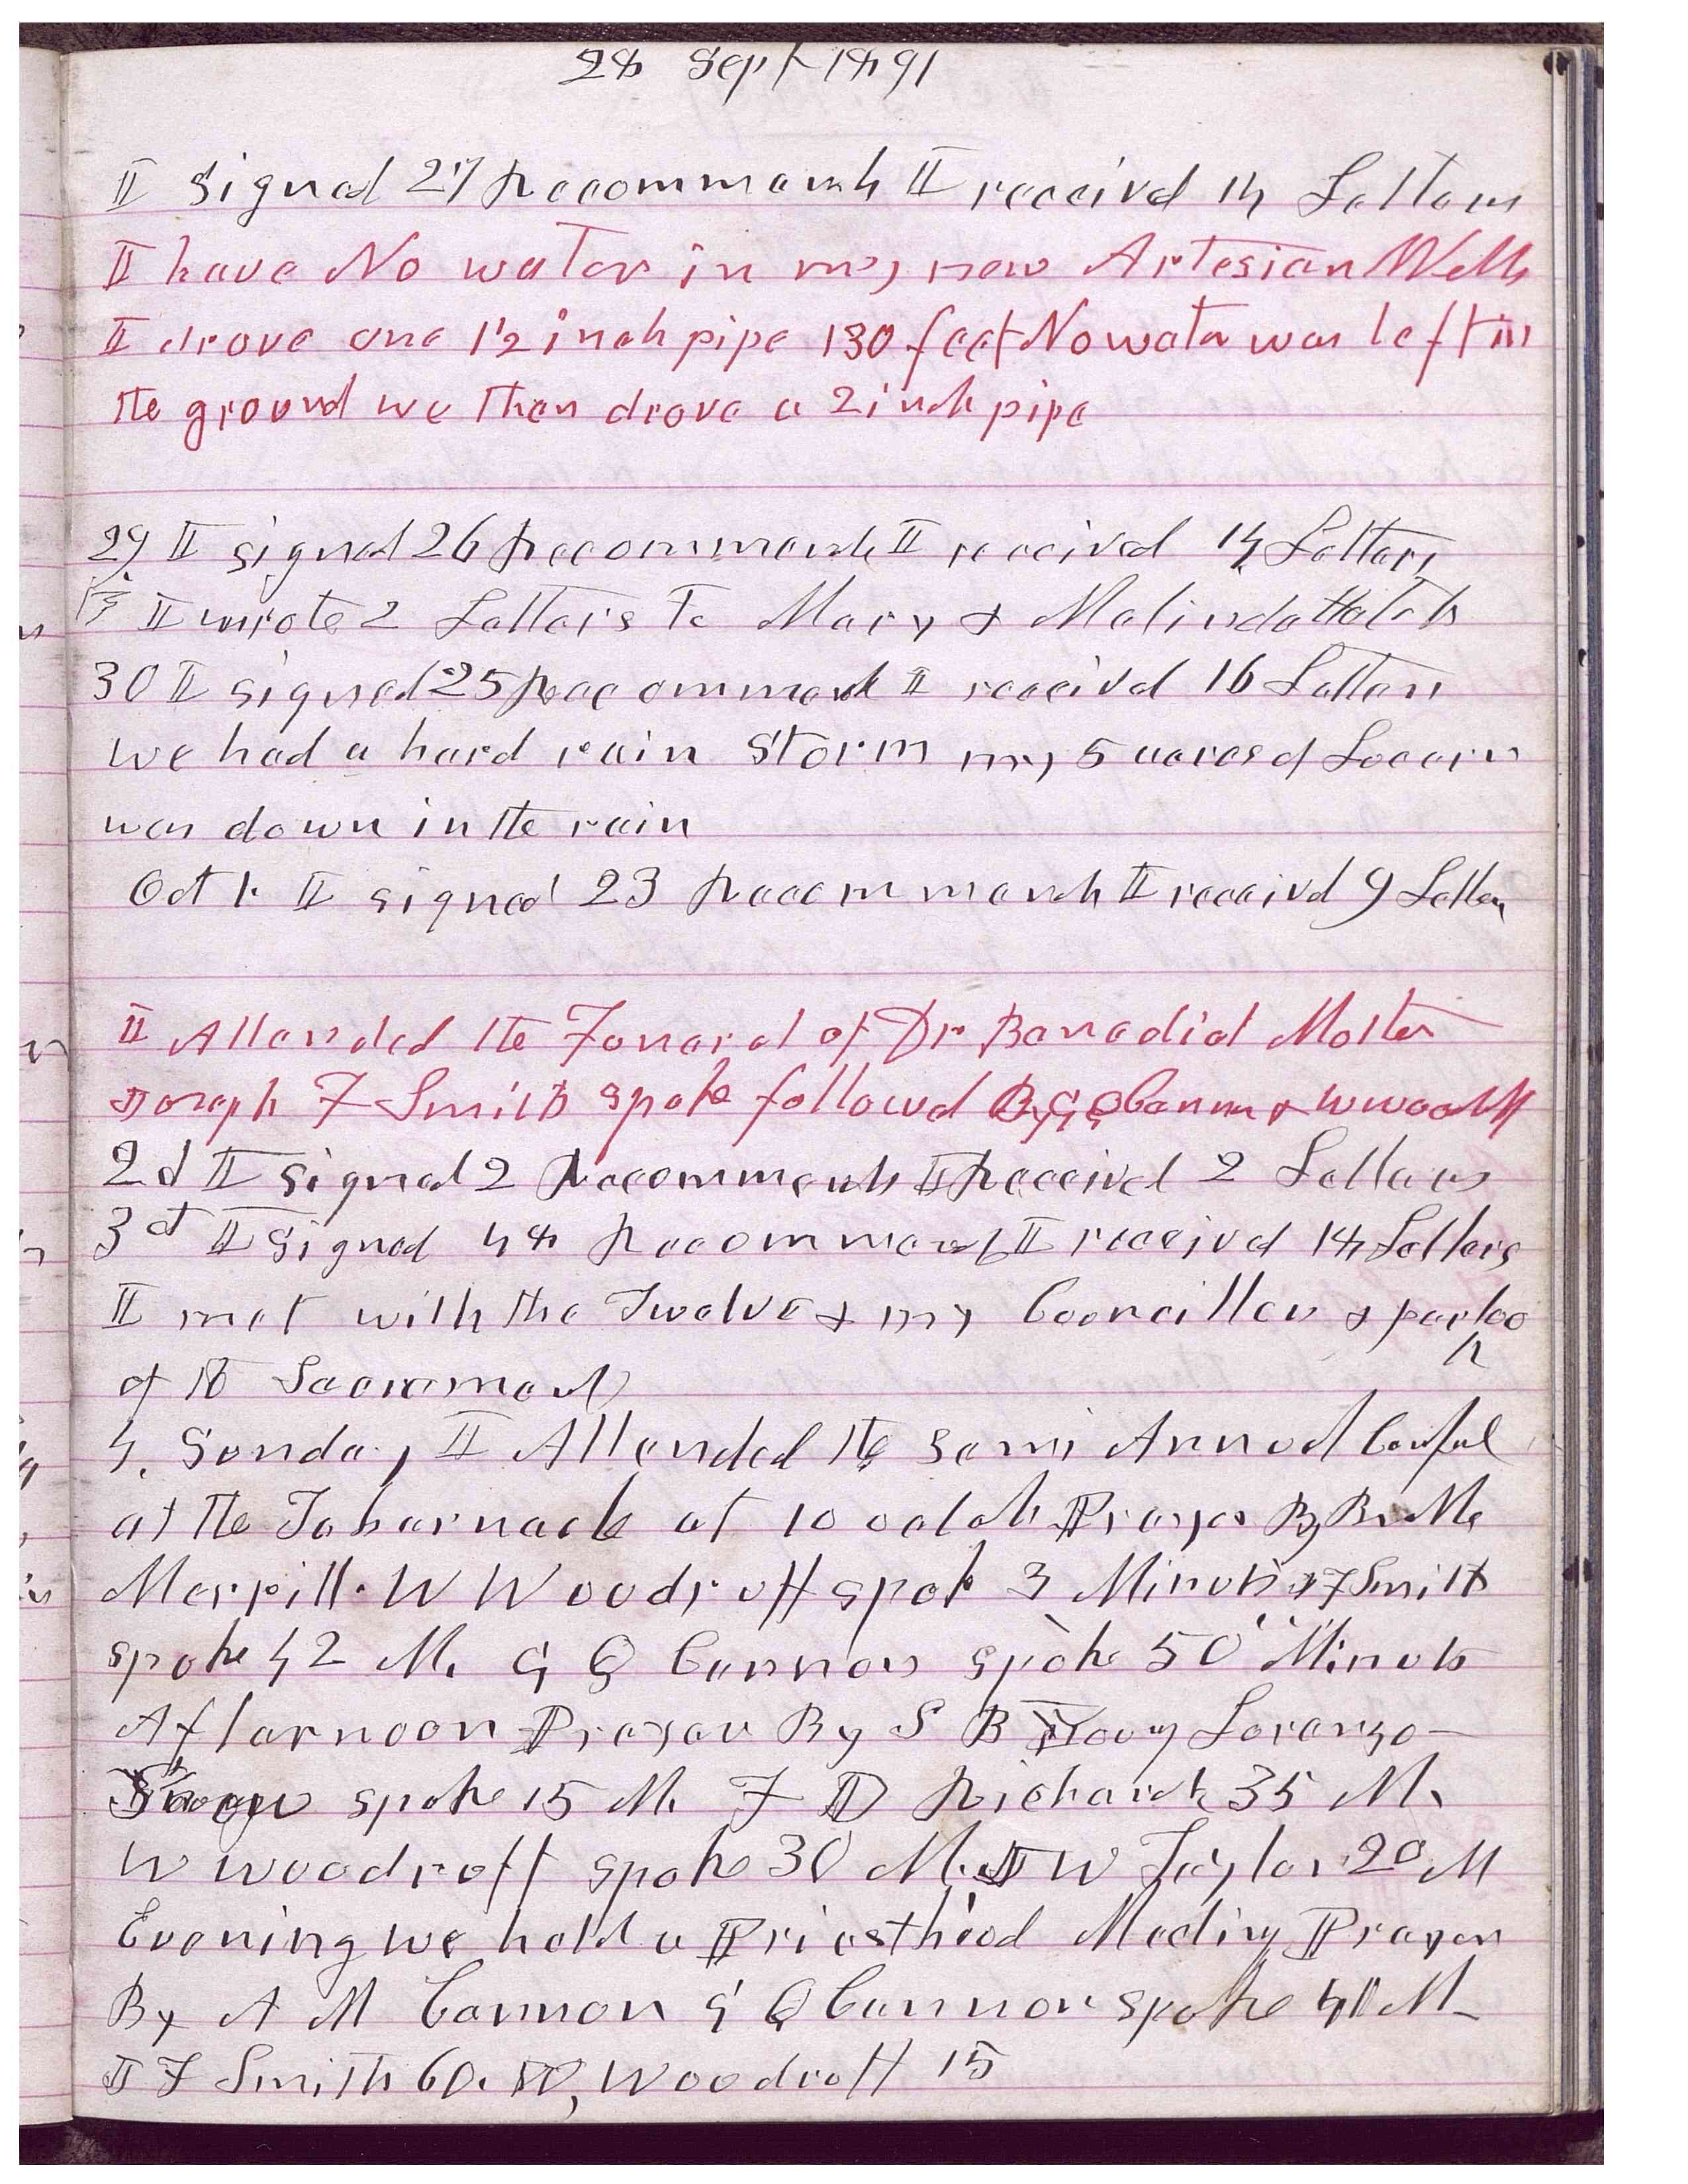 28 Sept 1891
I signed 27 Recommends I receivd 14 Letters
I have No water in my new Artesian Wells
I drove one 1½ inch pipe 130 feet No water was left in
the ground we then drove a 2 inch pipe
29 I signed 26 Recommends I received 14 Letters
I wrote 2 Letters to Mary & Malinda Hatch
30 I signed 25 Recommends I receivd 16 Letters
we had a hard rain Storm my 5 acres of Lucern
was down in the rain
Oct 1. I signed 23 Recommends I receivd 9 Letters
I Attended the Funeral of Dr Benedict
Joseph F Smith spoke followed By G Q Cannon & W Woodruff
2d I signed 2 Recommends I Received 2 Letters
3d I signed 48 Recommends I received 18 Letters
I met with the Twelve & my Councillers & partook
of the Sacrament
4. Sunday I Attended the Semi Annual Confrence
at the Tabernacle at 10 oclok Prayer By Br M.
Merrill. W Woodruff spok 3 Minuts J F Smith
spoke 42 M. G Q Cannon spoke 50 Minuts
Afternoon Prayer By S B Young Lorenzo
Snow spoke 15 M. F D Richards 35 M.
W Woodruff spoke 30 M. J W Taylor 20 M
Evening we held a Priesthood Meeting Prayer
By A M Cannon G Q Cannon spoke 41 M
J F Smith 60. W, Woodruff 15